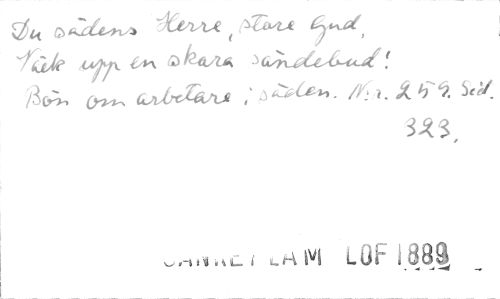 Du sädens Herre, store Gud,
Väck upp en skara sändebud!
Bön om arbetare i säden. N:r. 259. Sid.
323.
SANKEY LAM LOF 1889